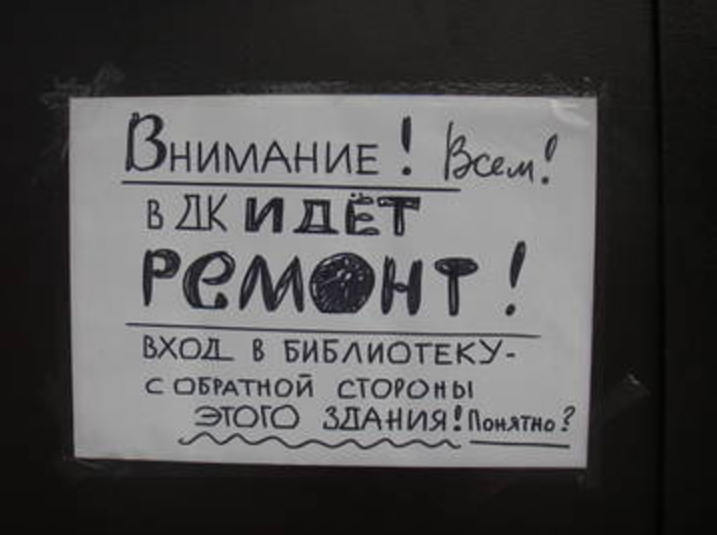 Внимание! Всем!
в ДК идёт
ремонт!
вход в библиотеку-
с обратной стороны
этого здания! Понятно?